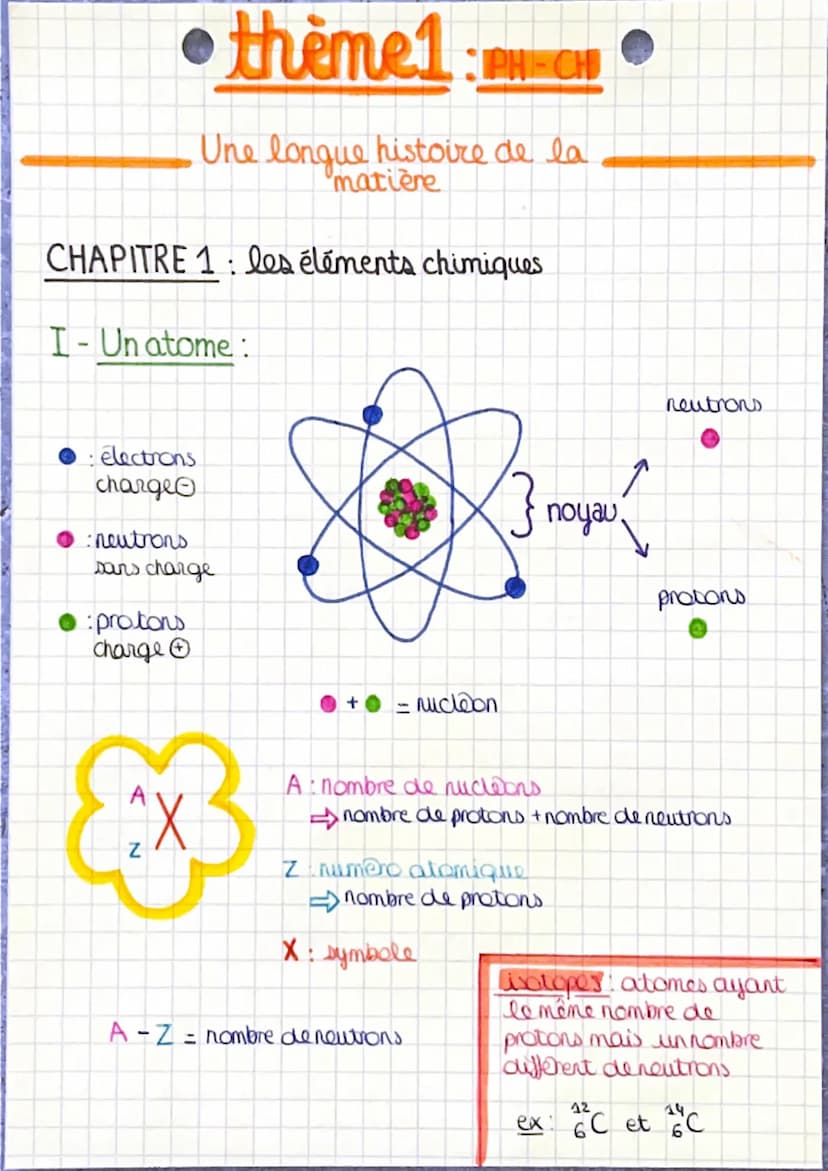 thème1 : PH-CH
Une longue histoire de la
matière
CHAPITRE 1 : les éléments chimiques
I - Un atome :
: électrons
charge ⊖
: neutrons
sans charge
: protons
charge ⊕
} noyau
neutrons
protons
+ = nucléon
A
X
Z
A : nombre de nucléons
⇒ nombre de protons + nombre de neutrons
Z : numéro atomique
⇒ nombre de protons
X : symbole
A - Z = nombre de neutrons
isotopes : atomes ayant
le même nombre de
protons mais un nombre
différent de neutrons
ex : ¹²₆C et ¹⁴₆C